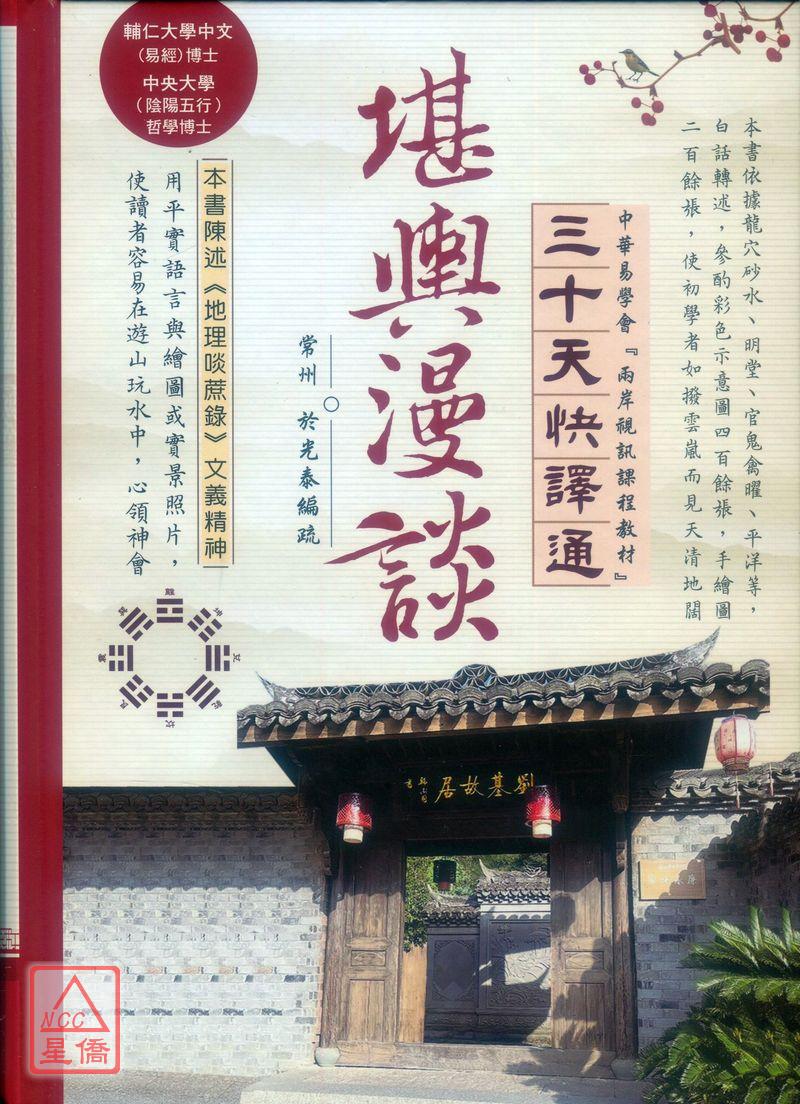 輔仁大學中文
(易經)博士
中央大學
(陰陽五行)
哲學博士
本書依據龍穴砂水、明堂、官鬼禽曜、平洋等，
白話轉述，參酌彩色示意圖四百餘張，手繪圖
二百餘張，使初學者如撥雲嵐而見天清地闊
中華易學會『兩岸視訊課程教材』
三十天快譯通
堪輿漫談
常州 於光泰編疏
本書陳述《地理啖蔗錄》文義精神
用平實語言與繪圖或實景照片，
使讀者容易在遊山玩水中，心領神會
離
坤
兌
乾
坎
艮
震
巽
劉基故居
NCC
星僑